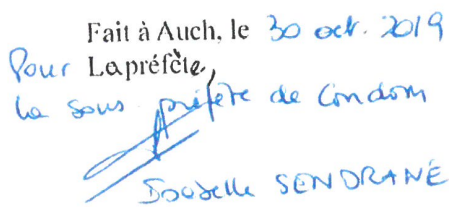 Fait à Auch, le 30 oct. 2019
Pour La préfète,
La sous préfète de Condom
Isabelle SENDRANÉ